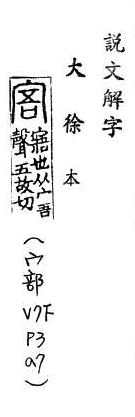 説文解字
大徐本
𡨂寤也从宀吾
聲五故切
(宀部V7下P3a7)